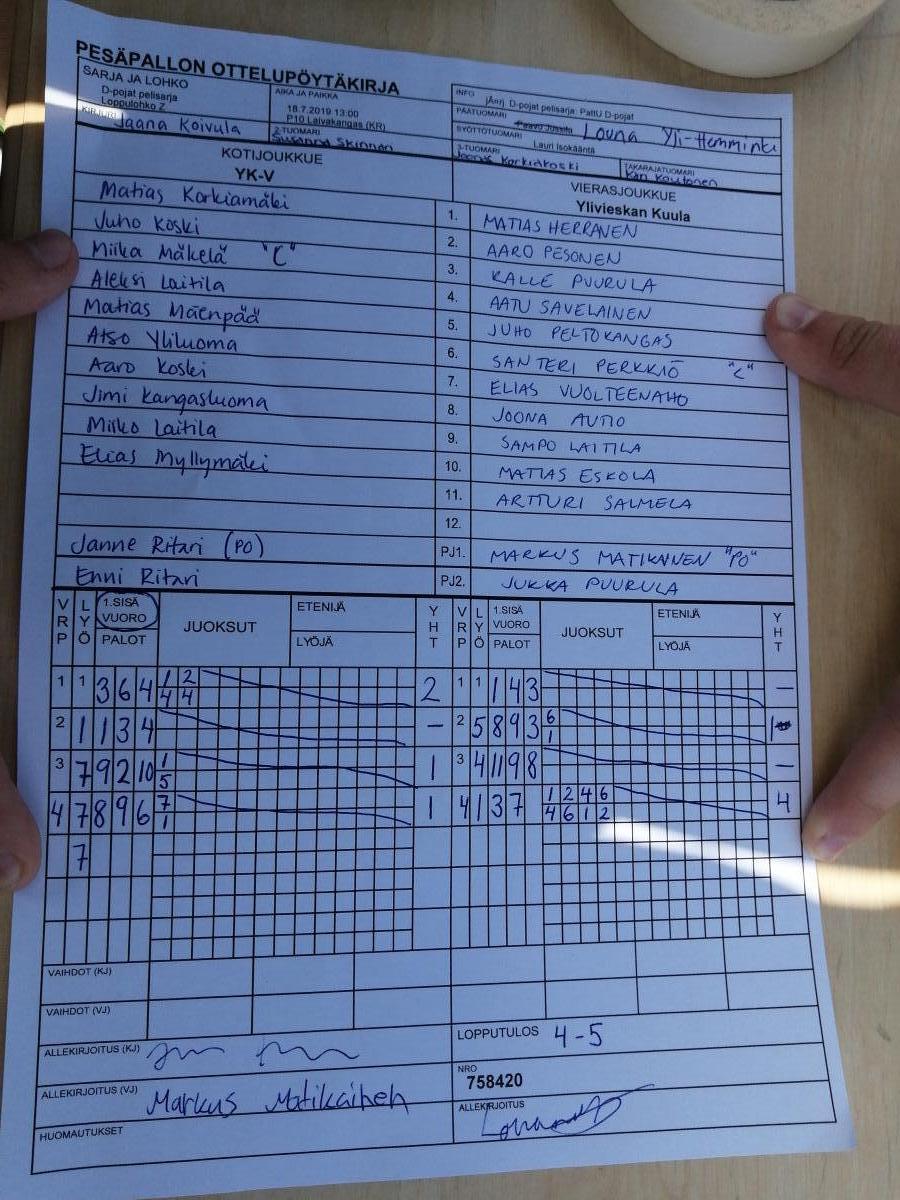 PESÄPALLON OTTELUPÖYTÄKIRJA
SARJA JA LOHKO
D-pojat pelisarja
Loppulohko Z
AIKA JA PAIKKA
18.7.2019 13:00
P10 Laivakangas (KR)
INFO
jÄrrj D-pojat pelisarja: PattU D-pojat
KIRJURI
Jaana Koivula
2-TUOMARI
Susanna Skinnari
PÄÄTUOMARI
Paavo Jussila Louna Yli-Hemminki
SYÖTTÖTUOMARI
Lauri Isokääntä
3-TUOMARI
TAKARAJATUOMARI
KOTIJOUKKUE
YK-V
VIERASJOUKKUE
Ylivieskan Kuula
Matias Korkiamäki 1. MATIAS HERRANEN
Juho Koski 2. AARO PESONEN
Miika Mäkelä "C" 3. KALLE PUURULA
Aleksi Laitila 4. AATU SAVELAINEN
Matias Mäenpää 5. JUHO PELTOKANGAS
Atso Yliluoma 6. SANTERI PERKKIÖ "C"
Aaro Koski 7. ELIAS VUOLTEENAHO
Jimi Kangasluoma 8. JOONA AUTIO
Misko Laitila 9. SAMPO LAITILA
Eeas Myllymäki 10. MATIAS ESKOLA
11. ARTTURI SALMELA
12.
Janne Ritari (PO) PJ1. MARKUS MATIKAINEN "PO"
Enni Ritari PJ2. JUKKA PUURULA
VRP LYÖ 1.SISÄ VUORO PALOT JUOKSUT ETENIJÄ LYÖJÄ YHT VRP LYÖ 1.SISÄ VUORO PALOT JUOKSUT ETENIJÄ LYÖJÄ YHT
1 1 3 6 4 1 2 2 1 1 1 4 3 –
4 4
2 1 1 3 4 – 2 5 8 9 3 6 1
1
3 7 9 2 10 1 1 3 4 11 9 8 –
5
4 7 8 9 6 7 1 4 1 3 7 1 2 4 6 4
1 4 6 1 2
7
VAIHDOT (KJ)
VAIHDOT (VJ)
ALLEKIRJOITUS (KJ)
LOPPUTULOS 4-5
ALLEKIRJOITUS (VJ) Markus Matikainen
NRO
758420
HUOMAUTUKSET
ALLEKIRJOITUS